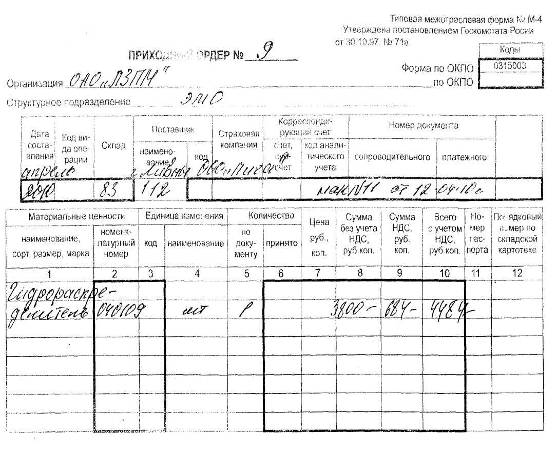 Типовая межотраслевая форма № М-4
Утверждена постановлением Госкомстата Росии
от 30.10.97. № 71а
ПРИХОДНЫЙ ОРДЕР № 9
Коды
Форма по ОКПО 0315003
Организация ОАО „ЛЗПМ"
по ОКПО
Структурное подразделение ЭМО
Дата составления
Код вида операции
Склад
Поставщик
наименование
код
Страховая компания
Корреспондирующий счет
счет, счет
код аналитического учета
Номер документа
сопроводительного
платежного
апрель г. Ливны ООО
2010 83 112 накл N11 от 12.04.10г.
Материальные ценности
наименование, сорт, размер, марка
номенклатурный номер
Единица измерения
код
наименование
Количество
по документу
принято
Цена руб., коп.
Сумма без учета НДС, руб.коп.
Сумма НДС, руб. коп.
Всего с учетом НДС, руб.коп.
Номер паспорта
Порядковый номер по складской картотеке
1 2 3 4 5 6 7 8 9 10 11 12
Гидрораспре-
делитель 040109 шт 3800- 684- 4484-